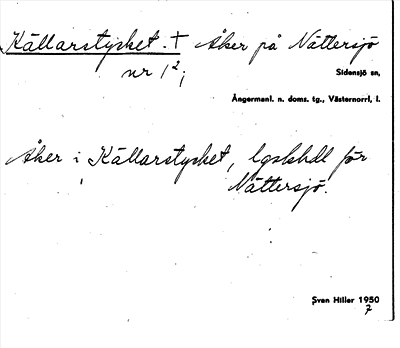 Källarstycket. † Åker på Nättersjö
nr 1²;
Sidensjö sn,
Ångermanl. n. doms. tg., Västernorrl, l.
Åker i Källarstycket, lgskhdl för
Nättersjö.
Sven Hiller 1950
7